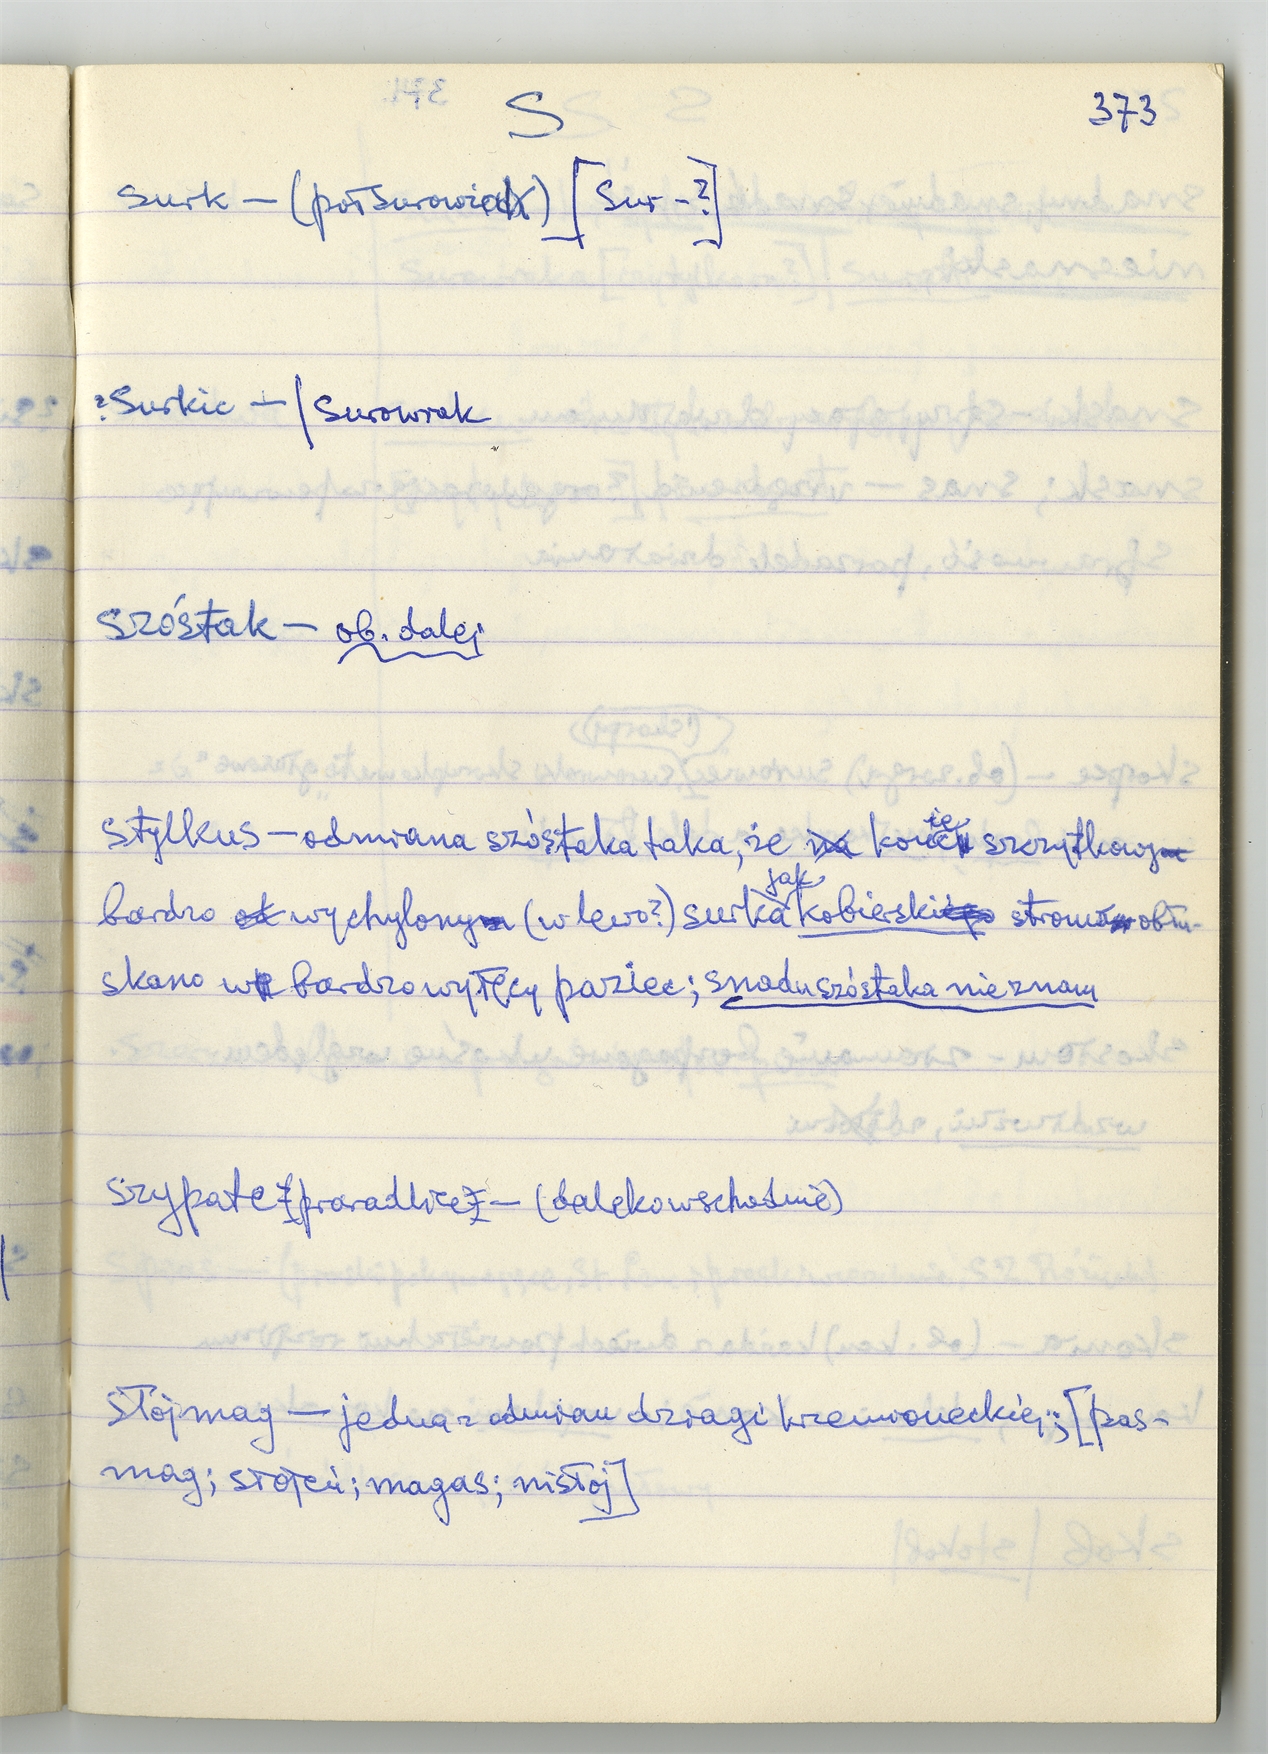 S 373
surk — (półsurowiec) [sur-?]
? surkic — | surowiak
szóstak — ob. dalej
stylkus — odmiana szóstaka taka, że koniec szczytkowy
bardzo wychylony (w lewo?) surka jak kobierski stromo obłu-
skano w bardzo wyłęcy paziec; snadu szóstaka nie znam
szypate [praradlice] — (dalekowschodnie)
stójmag — jedna z odmian dziagi krzemioneckiej; [pas-
mag; stójeń; magas; nistój]